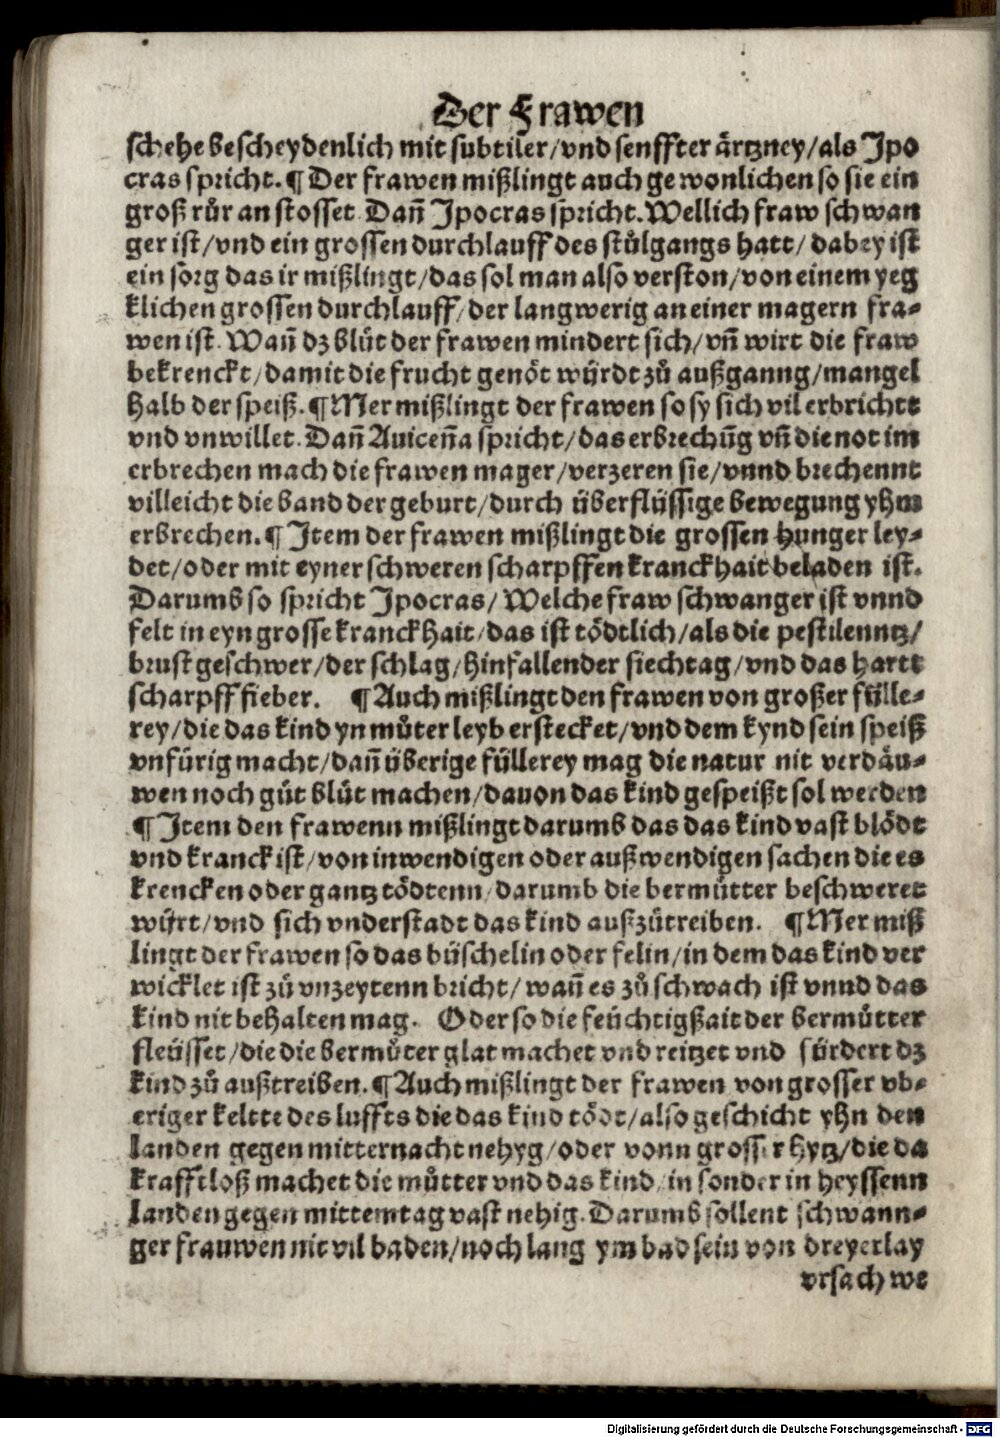 Der Frawen
schehe bescheydenlich mit subtiler/vnd senffter ärtzney/als Jpo
cras spricht.¶ Der frawen mißlingt auch gewonlichen so sie ein
groß růr anstosset. Dañ Jpocras spricht. Wellich fraw schwan
ger ist/vnd ein grossen durchlauff des stůlgangs hatt/dabey ist
ein sorg das ir mißlingt/das sol man also verston/von einem yeg
klichen grossen durchlauff/der langwerig an einer magern fra-
wen ist. Wañ dz blůt der frawen mindert sich/vñ wirt die fraw
bekrenckt/damit die frucht genöt würdt zů außganng/mangel
halb der speiß.¶ Mer mißlingt der frawen so sy sich vil erbrichtt
vnd vnwillet. Dañ Auiceña spricht/das erbrechũg vñ die not im
erbrechen mach die frawen mager/verzeren sie/vnnd brechennt
villeicht die band der geburt/durch überflüssige bewegung yhm
erbrechen.¶ Jtem der frawen mißlingt die grossen hunger ley-
det/oder mit eyner schweren scharpffen kranckhait beladen ist.
Darumb so spricht Jpocras/Welche fraw schwanger ist vnnd
felt in eyn grosse kranckhait/das ist tödtlich/als die pestilenntz/
brust geschwer/der schlag/hinfallender siechtag/vnd das hartt
scharpff fieber. ¶ Auch mißlingt den frawen von großer fülle-
rey/die das kind yn můter leyb erstecket/vnd dem kynd sein speiß
vnfürig macht/dañ überige füllerey mag die natur nit verdäu-
wen noch gůt blůt machen/dauon das kind gespeißt sol werden
¶ Jtem den frawenn mißlingt darumb das das kind vast blödt
vnd kranck ist/von inwendigen oder außwendigen sachen die es
krencken oder gantz tödtenn/darumb die bermůtter beschweret
würt/vnd sich vnderstadt das kind außzůtreiben. ¶ Mer miß
lingt der frawen so das büschelin oder felin/in dem das kind ver
wicklet ist zů vnzeytenn bricht/wañ es zů schwach ist vnnd das
kind nit behalten mag. Oder so die feüchtigßait der bermůtter
fleüsset/die die bermůter glat machet vnd reitzet vnd fürdert dz
kind zů außtreiben.¶ Auch mißlingt der frawen von grosser vb-
eriger keltte des luffts die das kind tödt/also geschicht yhn den
landen gegen mitternacht nehyg/oder vonn grosser hytz/die da
krafftloß machet die můtter vnd das kind/in sonder in heyssenn
landen gegen mittemtag vast nehig. Darumb sollent schwann-
ger frauwen nit vil baden/noch lang ym bad sein von dreyerlay
vrsach we
Digitalisierung gefördert durch die Deutsche Forschungsgemeinschaft - DFG